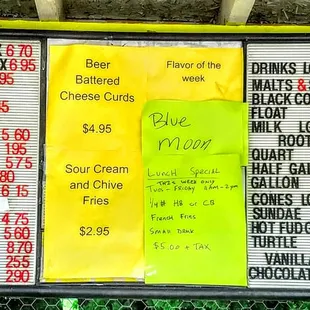 6 70
6 95
95
5 60
5 60
1 95
5 75
80
6 15
4 75
5 60
8 70
2 55
2 90
Beer
Battered
Cheese Curds
$4.95
Sour Cream
and Chive
Fries
$2.95
Flavor of the
week
Blue
Moon
Lunch Special
This week only
Tues - Friday
1/4# HB or CB
French Fries
Small Drink
$5.00 + TAX
DRINKS
MALTS &
BLACK CO
FLOAT
MILK
ROOT
QUART
HALF GA
GALLON
CONES
SUNDAE
HOT FUD
TURTLE
VANILL
CHOCOLAT